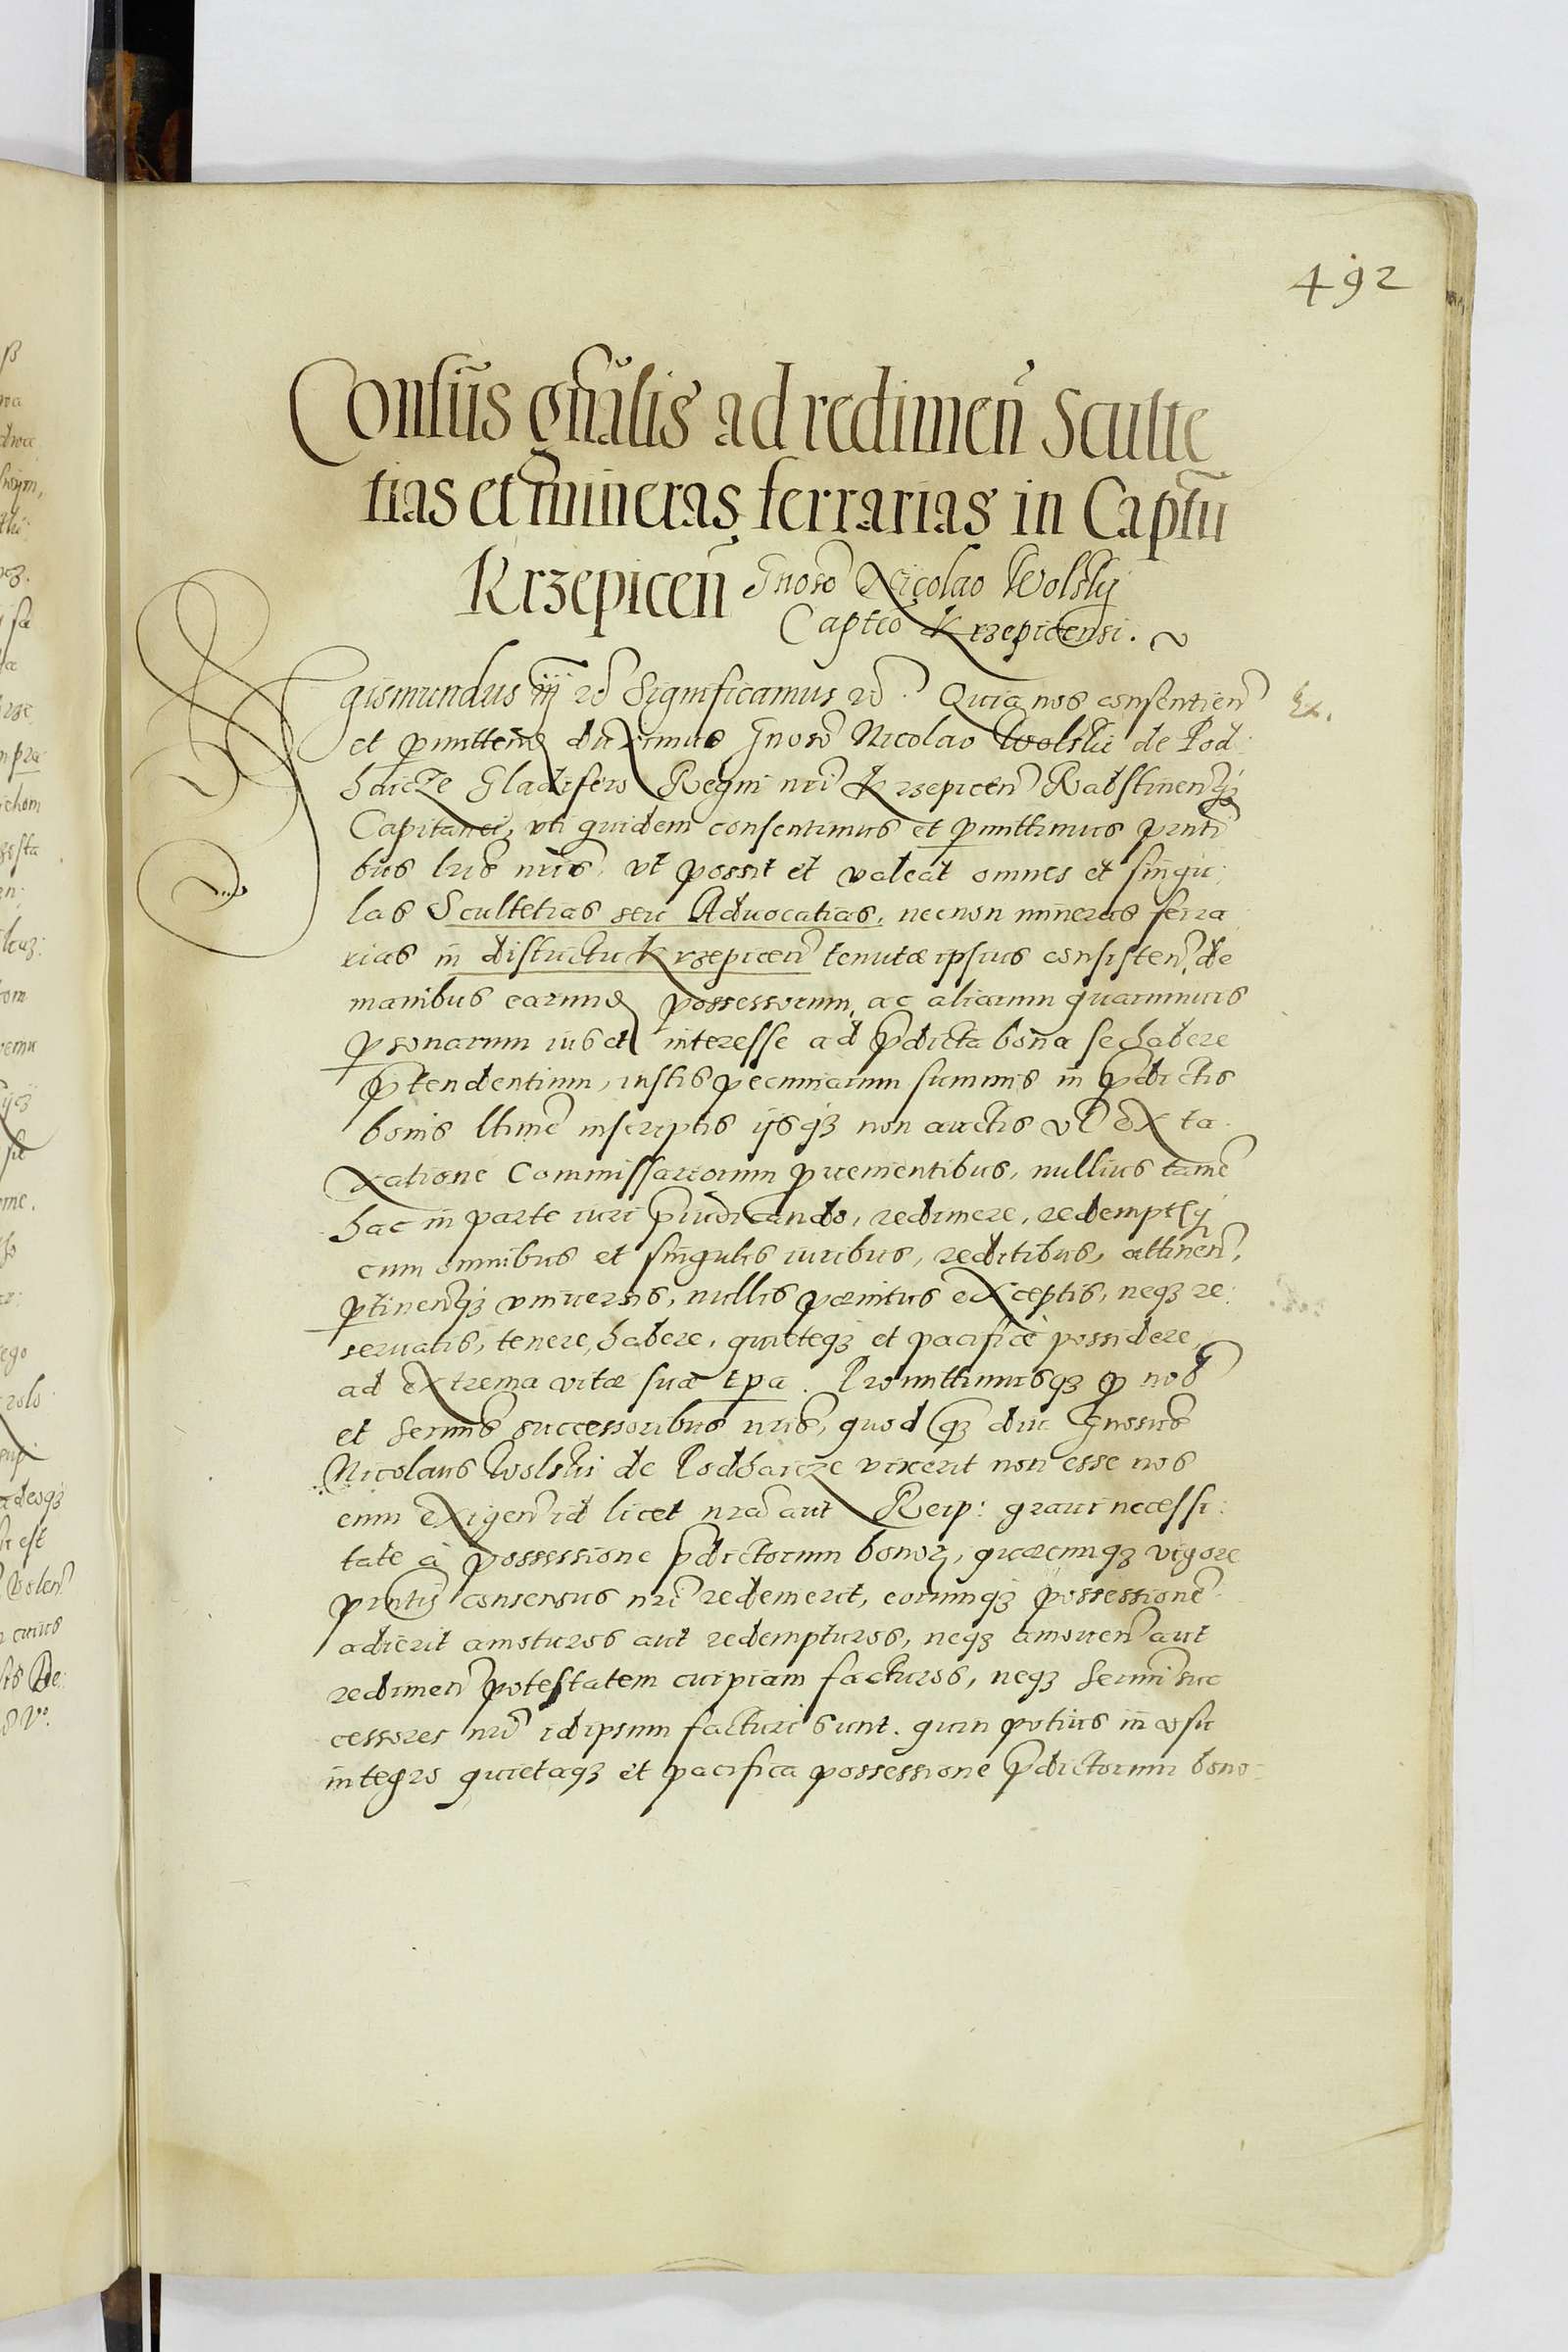 492
Consūs gnālis ad redimen Sculte
tias et mineras ferrarias in Captū
Krzepicen Gnoso Nicolao Wolsky
Capteo Krzepicensi.
Sigismundus iij rc Significamus rc. Quia nos consentien
Ex.
et pmitten duximus Gnoso Nicolao Wolski de Pod
haicze Gladifero Regni nri Krzepicen Rabstinenq
Capitaneo, vti quidem consentimus et pmittimus pnti
bus lris nris, vt possit et valeat omnes et singu
las Scultetias seu Aduocatias, necnon mineras ferra
rias in districtu Krzepicen tenutæ ipsius consisten, de
manibus earund possessorum, ac aliarum quarumuis
psonarum ius et interesse ad pdicta bona se habere
ptendentium, iustis pecuniarum summis in pdictis
bonis ltime inscriptis ijsq3 non auctis vl ex ta
xatione Commissariorum puenientibus, nullius tame
hac in parte iuri piudicando, redimere, redemptsq
cum omnibus et singulis iuribus, reditibus, attinen,
ptinenq3 vniuersis, nullis pænitus exceptis, neq3 re
seruatis, tenere, habere, quieteq3 et pacifice possidere,
ad extrema vitæ suæ tpa. Promittimusq3 p nob
et sermis successoribus nris, quod q3 diu Gnosus
Nicolaus Wolski de Podhaicze vixerit non esse nos
eum exigen id licet nra aut Reip: graui necessi
tate à possessione pdictorum bonor, quæcunq3 vigore
pntis consensus nri redemerit, eorumq3 possessione
adierit amoturos aut redempturos, neq3 amouen aut
redimen potestatem cuipiam facturos, neq3 sermi suc
cessores nri idipsum facturi sunt. quin potius in vsu
integro quietaq3 et pacifica possessione pdictorum bono